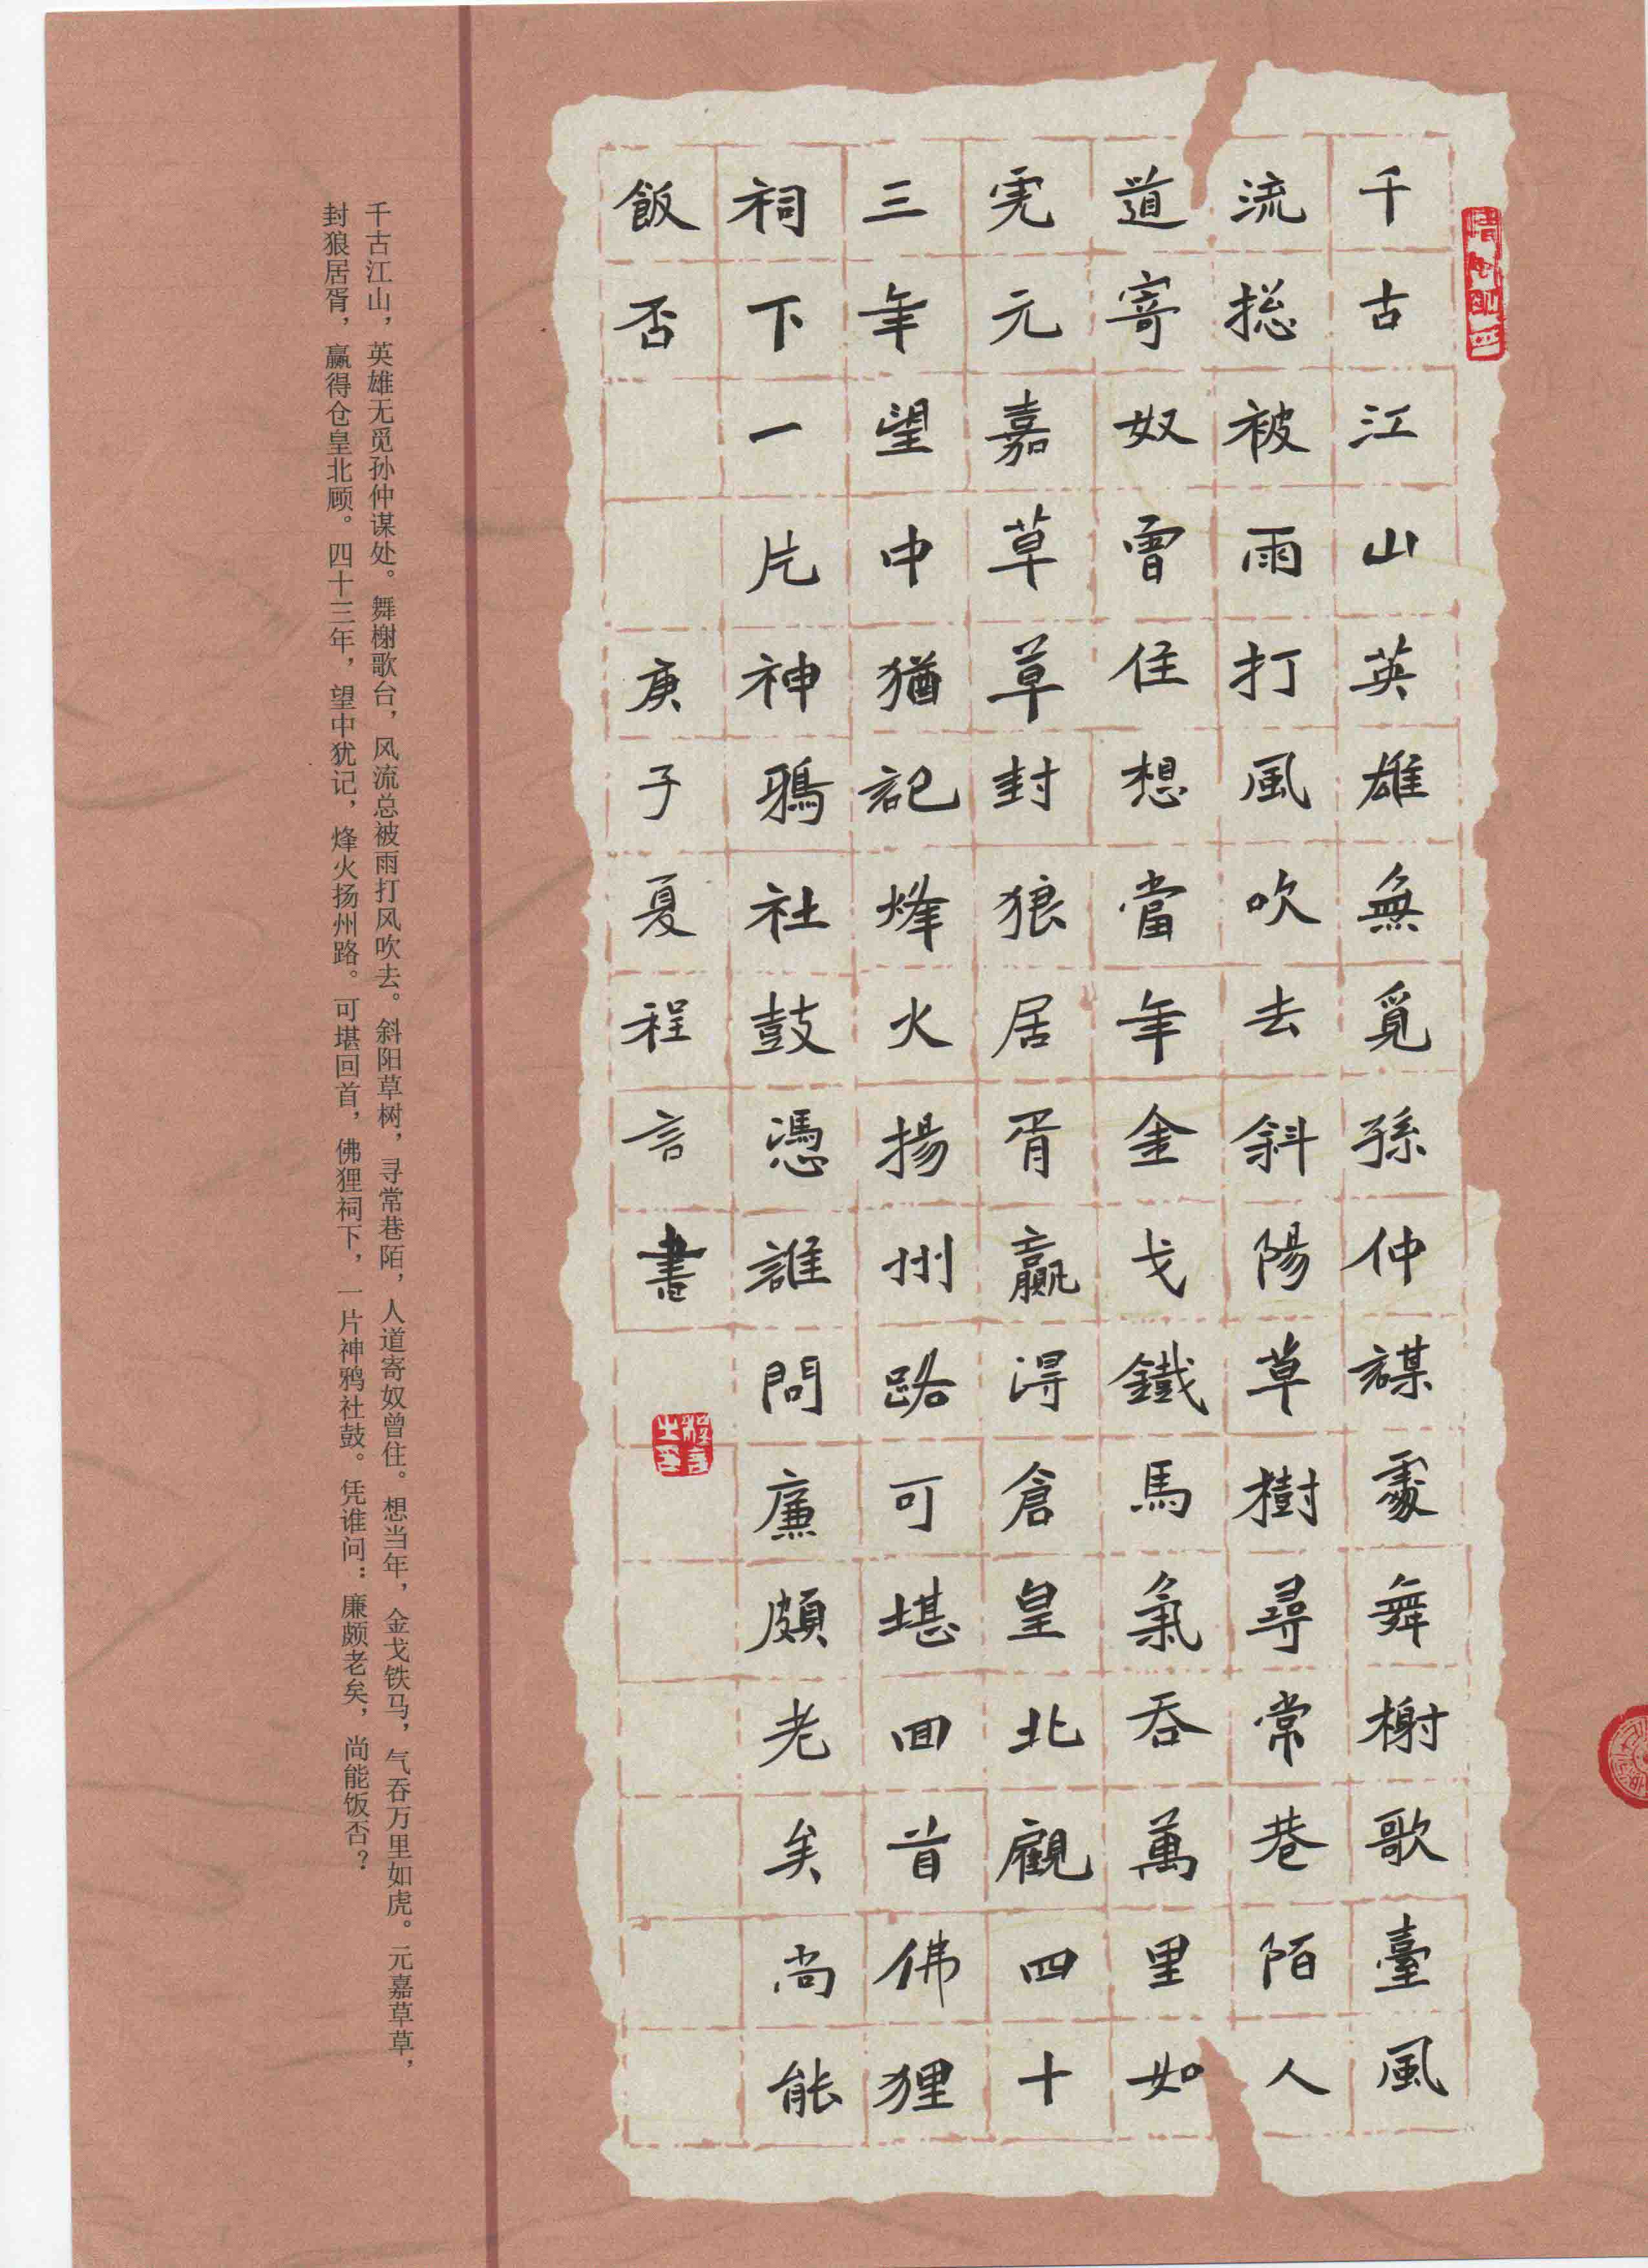 千古江山英雄無覓孫仲謀處舞榭歌臺風
流揔被雨打風吹去斜陽草樹尋常巷陌人
道寄奴曾住想當年金戈鐵馬氣吞萬里如
虎元嘉草草封狼居胥贏得倉皇北顧四十
三年望中猶記烽火揚州路可堪回首佛狸
祠下一片神鴉社鼓憑誰問廉頗老矣尚能
飯否 庚子夏程言書
程言之印
千古江山，英雄无觅孙仲谋处。舞榭歌台，风流总被雨打风吹去。斜阳草树，寻常巷陌，人道寄奴曾住。想当年，金戈铁马，气吞万里如虎。元嘉草草，
封狼居胥，赢得仓皇北顾。四十三年，望中犹记，烽火扬州路。可堪回首，佛狸祠下，一片神鸦社鼓。凭谁问：廉颇老矣，尚能饭否？